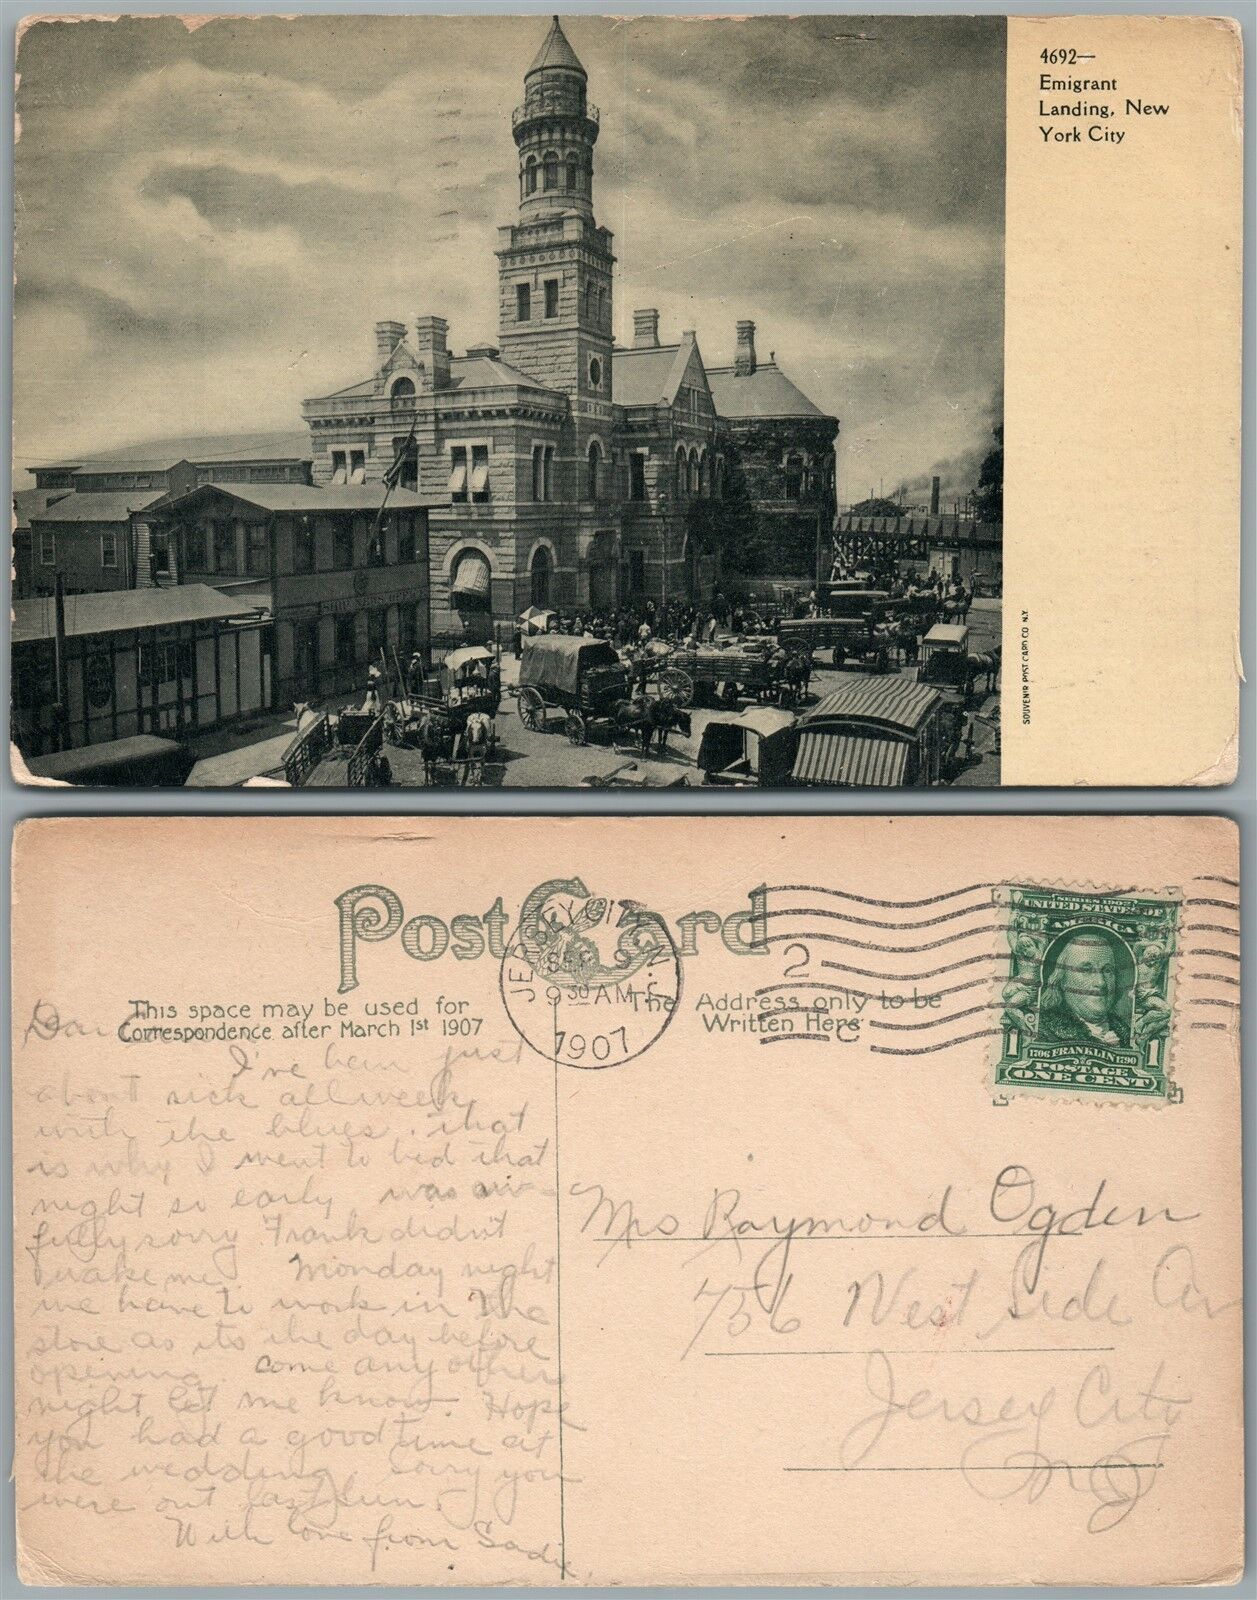 4692—
Emigrant
Landing, New
York City
SOUVENIR POST CARD CO. N.Y.
Post Card
This space may be used for
Correspondence after March 1st 1907
The Address only to be
Written Here
JERSEY CITY, N.J.
SEP 9
9 30 AM
1907
2
C
SERIES 1902
UNITED STATES OF
AMERICA
1706 FRANKLIN 1790
1 POSTAGE 1
ONE CENT
Dear
I've been just
about sick all week
with the blues. that
is why I went to bed that
night so early was aw-
fully sorry Frank didn't
wake me. Monday night
we have to work in the
store as its the day before
opening. come any other
night let me know. Hope
you had a good time at
the wedding sorry you
were out last Sun.
With love from Sadie.
Mrs Raymond Ogden
756 West Side Av
Jersey City
NJ